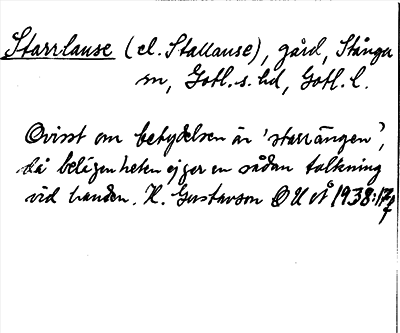 Starrlause (el. Stallause), gård, Stånga
sn, Gotl. s. hd, Gotl. l.
Ovisst om betydelsen är 'starrängen',
då belägenheten ej ger en sådan tolkning
vid handen. H. Gustavson OUÅ 1938:17